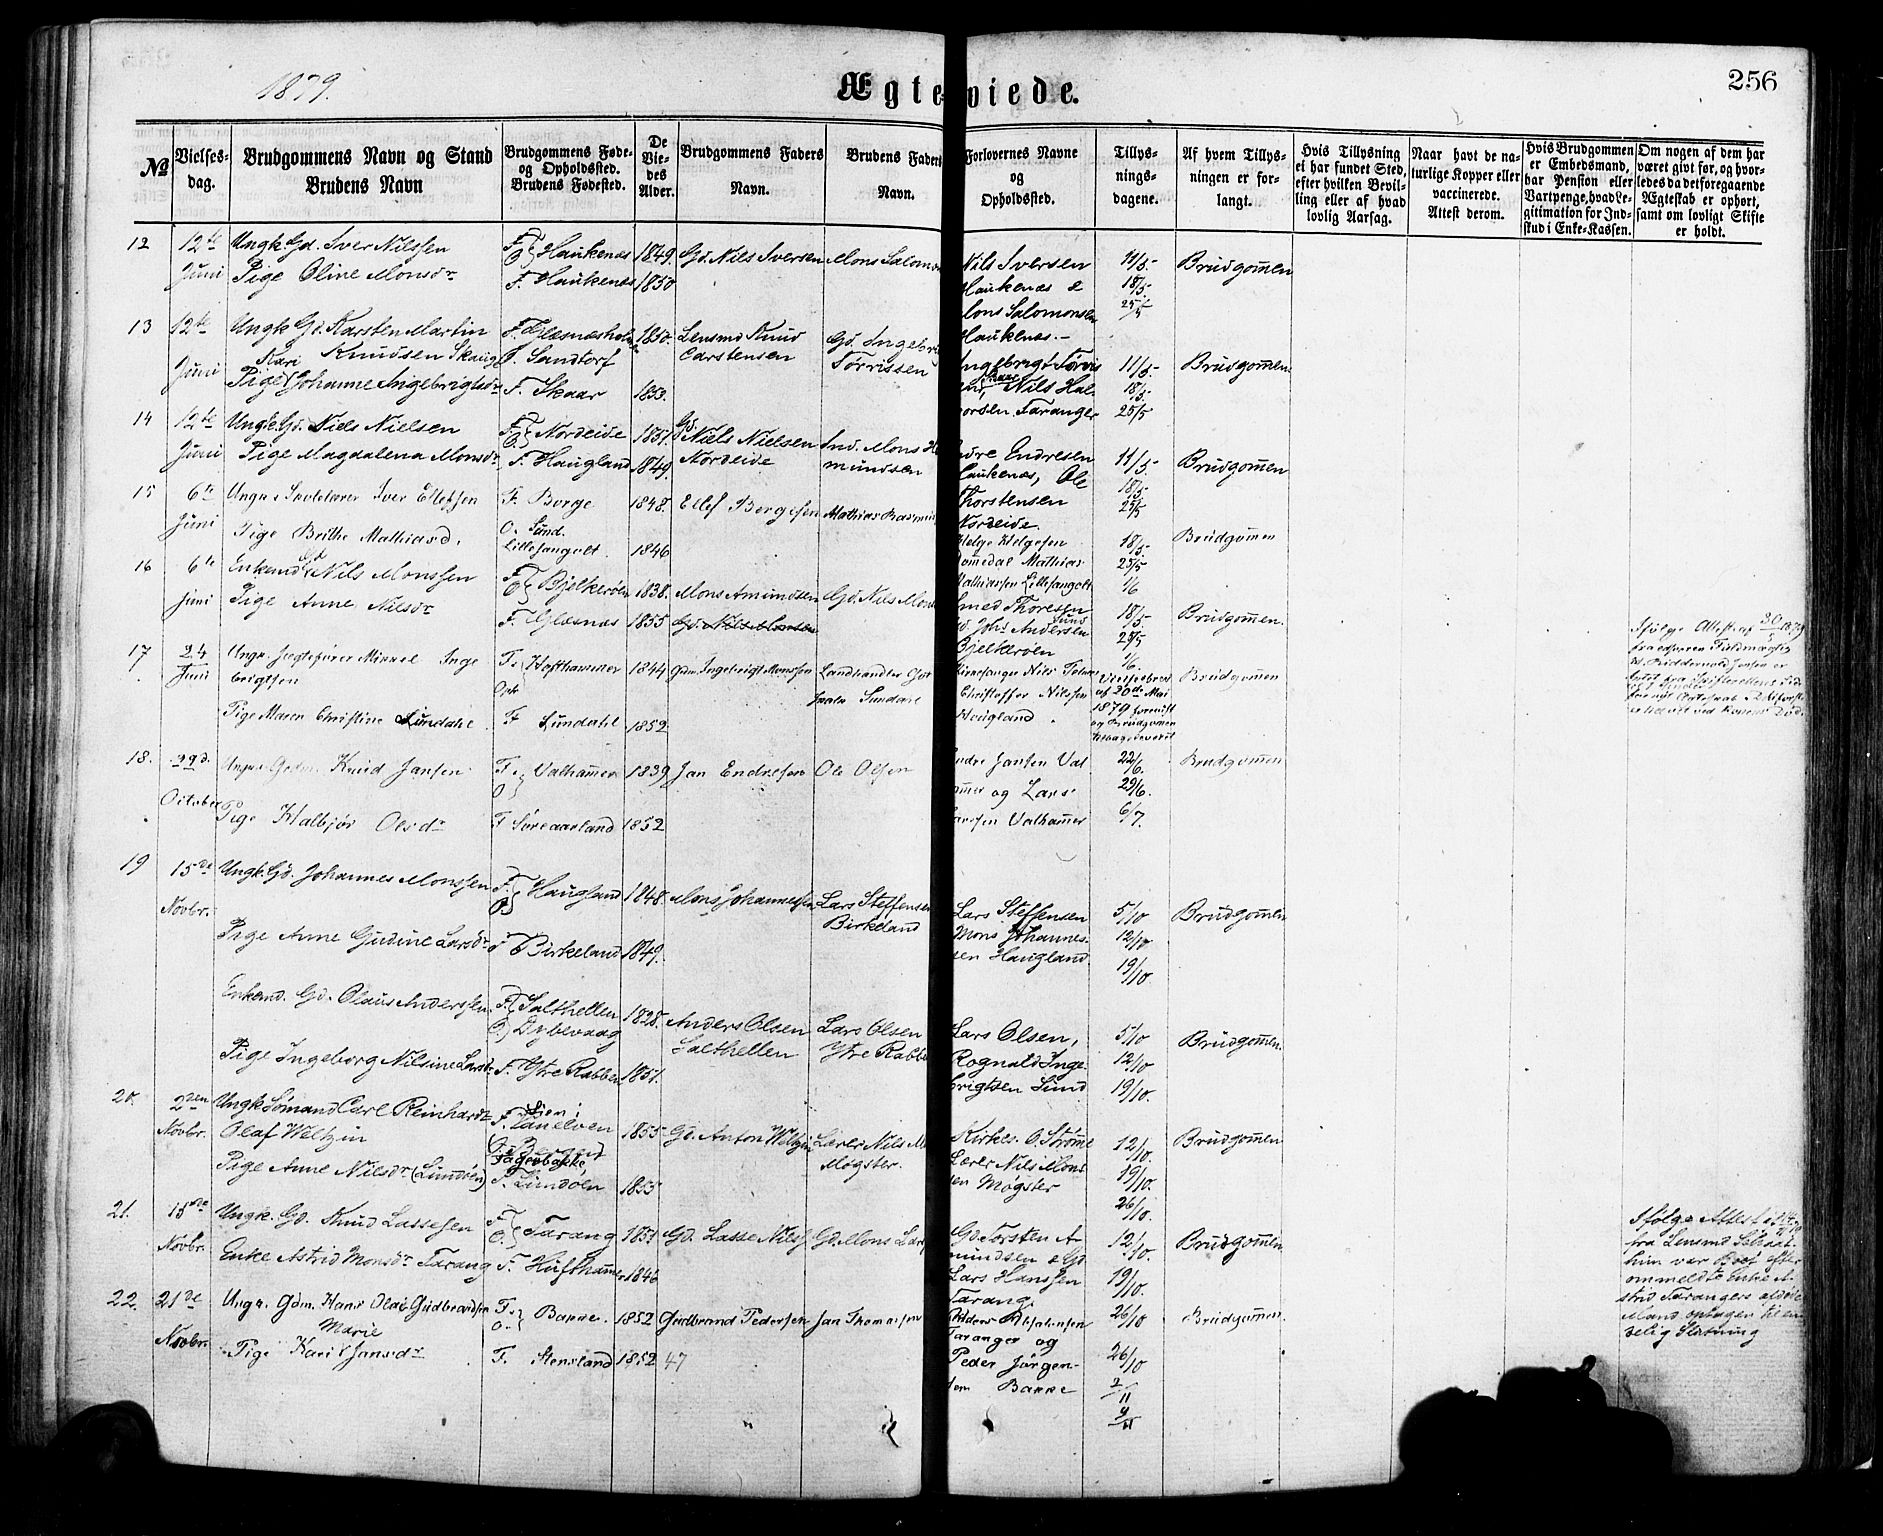 1879.
Ægteviede.
256
№
Vielses-
dag.
Brudgommens Navn og Stand
Brudens Navn
Brudgommens Føde-
og Opholdssted.
Brudens Fødested.
De
Vie-
des
Alder.
Brudgommens Faders
Navn.
Brudens Faders
Navn.
Forlovernes Navne
og
Opholdssted.
Tillys-
nings-
dagene.
Af hvem Tillys-
ningen er for-
langt.
Hvis Tillysning
ei har fundet Sted,
efter hvilken Bevil-
ling eller af hvad
lovlig Aarsag.
Naar havt de na-
turlige Kopper eller
vaccinerede.
Attest derom.
Hvis Brudgommen
er Embedsmand,
har Pension eller
Vartpenge, hvad Le-
gitimation for Ind-
skud i Enke-Kassen.
Om nogen af dem har
været givt før, og hvor-
ledes da det foregaaende
Ægteskab er ophørt,
samt om lovligt Skifte
er holdt.
12
12te
Juni
Ungk. Gd. Iver Nilssen
Pige Oline Monsdr
F. O. } Haukenæs
F. Haukenæs
1849.
1850
Gd. Nils Iversen
Mons Salomon
Nils Iversen
Haukenæs &
Mons Salomonsen
Haukenæs.
11/5.
18/5
25/5
Brudgommen
13
12te
Juni
Ungk. Gd. Karsten Martin
Knudsen Skaug
Pige Kari Johanne Ingebrigtsdr
F. Glesnæsholm
O. Sandtorf
F. Skaar
1850.
1853.
Lensmd Knud
Carstensen
Gd. Ingebrigt
Tørrissen
Ingebrigt Tørris
sen, Skaar, Nils Hal-
vorsen Taranger
11/5.
18/5
25/5
Brudgommen
14
12te
Juni
Ungk. Gd. Niels Nielsen
Pige Magdalena Monsdr
F. O. } Nordeide
F. Haugland
1851.
1849.
Gd. Niels Nielsen
Nordeide
Ind. Mons
mundsen
Endre Endresen
Haukenæs, Ole
Thorstensen
Nordeide.
11/5.
18/5
25/5
Brudgommen
15
6te
Juni
Iver Ellefsen
Pige Brithe Mathiasd.
F. Borge
O. Sund.
Lillesangolt.
1848.
1846
Ellef Bergesen
Mathias Rasmus
Helge Helgesen
Mathias
Mathiassen Lillesangolt
18/5.
25/5
1/6
Brudgommen
16
6te
Juni
Enkemd Gd. Nils Monssen
Pige Anne Nilsdr
F. O. } Bjelkerøen
F. Glesnæs
1838.
1855
Mons Amundsen
Gd. Nils Monsen
Gd. Nils Mons
Thoresen
Johs Andersen Sund
Bjelkerøen
18/5.
25/5
1/6.
Brudgommen.
17
24
Juni
Mikkel Inge
brigtsen
Pige Maren Christine Sundahl.
F. Hofthammer
Oph
F. Sundahl
1844
1852
Gm. Ingebrigt Monssen
Landhandler
Sundahl
Christoffer Nilssen
Haugland
af 20de Mai
1879
Brudgommen
18.
22d.
October
Ungk. Gdm. Knud Jansen
Pige Halbjør Olsdr
F. O. } Valhammer
F. Søreaarland
1839
1852
Jan Endresen
Ole Olsen
Endre Jansen Val
hammer og Lars
Larssen Valhammer
22/6.
29/6.
6/7.
Brudgommen
19
15de
Novbr.
Ungk. Gd. Johannes Monssen
Pige Anne Gudine Larsdr
F. O. } Haugland
F. Birkeland
1848.
1849.
Mons Johannessen
Lars Steffensen
Birkeland
Lars Steffensen
Mons Johannes-
sen Haugland.
5/10
12/10
19/10.
Brudgommen
Enkemd. Gd. Olaus Anderssen
Pige Ingeborg Nilsine Larsdr
F. Salthellen
O. Dybevaag
F. Ytre Rabben
1828.
1851.
Anders Olsen
Salthellen
Lars Olsen
Ytre Rabben
Lars Olsen,
Rognald Inge
brigtsen Sund
5/10
12/10
19/10.
Brudgommen.
20.
2den
Novbr.
Ungk. Sømand Carl Reinhardt
Olaf Weltzin
Pige Anne Nilsdr (Lundøen)
Fagerbakke,
F. Lundøen
1855
1855
Gd. Anton Weltzin
Lærer Nils M
Møgster.
Kirkes. O. Strømme
Lærer Nils Mons
sen Møgster
12/10.
19/10.
26/10.
Brudgommen
21.
15de
Novbr.
Ungk. Gd. Knud Lassesen
Enke Astrid Monsdr Tarang
F. O. } Tarang
F. Hufthammer
1851
1846
Gd. Lasse Nilss
Gd. Mons Lars
Gd. Torsten A-
mundsen & Gd
Lars Hanssen
Tarang.
12/10.
19/10
26/10
Brudgommen
Ifølge Attest
fra Lensmd
hun var efter
ommeldte Enke A-
strid Tarangers afdøde
Mand optagen til en-
delig Slutning
22.
21de
Novbr.
Ungk. Gdm. Hans Olai Gudbrandsen
Pige Kari Marie Jansdr
F. O. } Bakke.
F. Stensland
1852
1852
47
Gudbrand Pedersen
Jan Thomassen
Taranger og
Peder Jørgen-
sen Bakke
26/10
2/11
9/11
Brudgommen.